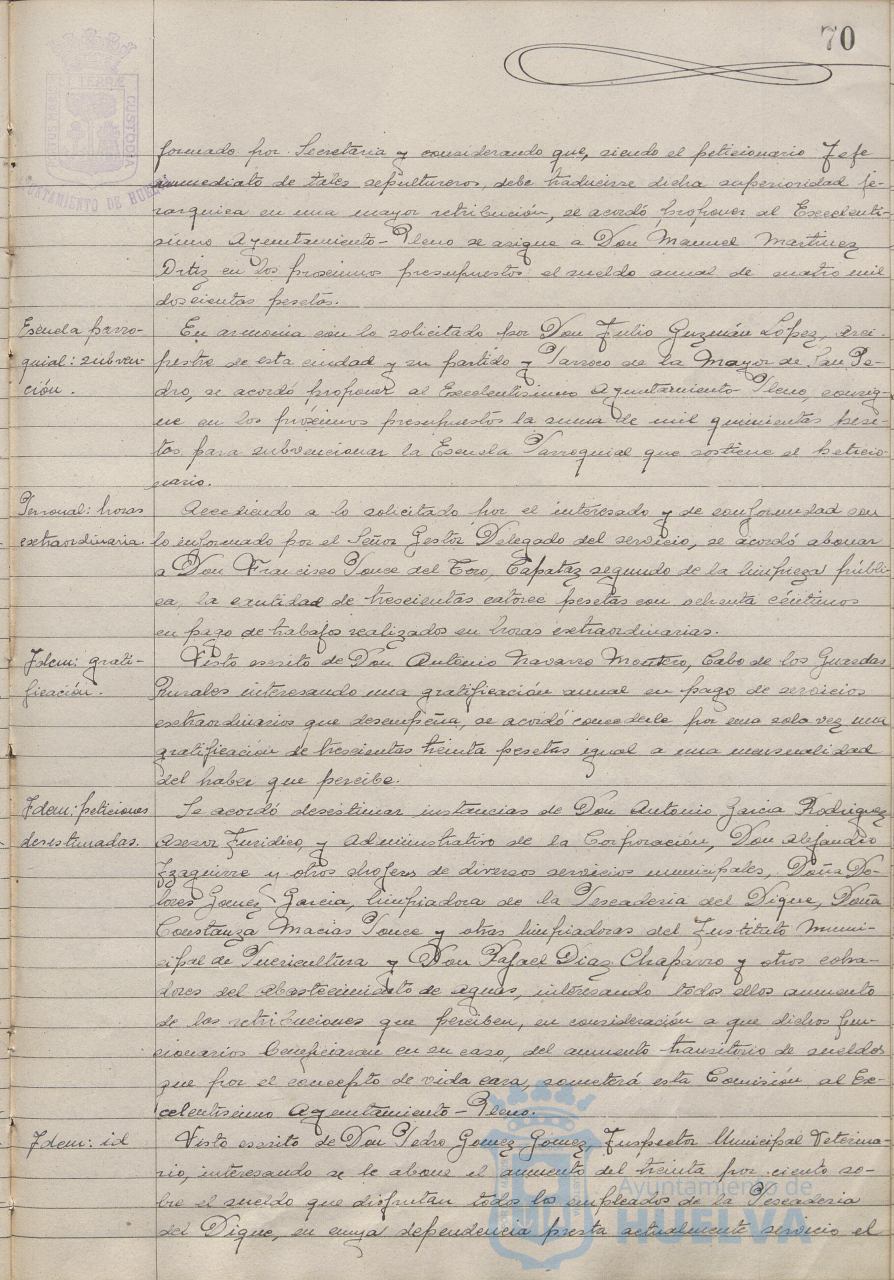 70
formado por Secretaria y considerando que, siendo el peticionario Jefe
inmediato de tales sepultureros, debe traducirse dicha superioridad je-
rarquica en una mayor retribución, se acordó proponer al Excelentí-
simo Ayuntamiento-Pleno se asigne a Don Manuel Martinez
Ortiz en los proximos presupuestos el sueldo anual de cuatro mil
doscientas pesetas.
Escuela parro-
quial: subven-
ción.
En armonia con lo solicitado por Don Julio Guzmán López, Arci-
preste de esta ciudad y su partido y Párroco de la Mayor de San Pe-
dro, se acordó proponer al Excelentisimo Ayuntamiento-Pleno, consig-
ne en los próximos presupuestos la suma de mil quinientas pese-
tas para subvencionar la Escuela Parroquial que sostiene el peticio-
nario.
Personal: horas
extraordinaria.
Accediendo a lo solicitado por el interesado y de conformidad con
lo informado por el Señor Gestor Delegado del servicio, se acordó abonar
a Don Francisco Ponce del Toro, Capataz segundo de la limpieza públi-
ca, la cantidad de trescientas catorce pesetas con ochenta céntimos
en pago de trabajos realizados en horas extraordinarias.
Idem: grati-
ficación.
Visto escrito de Don Antonio Navarro Montero, Cabo de los Guardas
Rurales interesando una gratificación anual en pago de servicios
extraordinarios que desempeña, se acordó concederle por una sola vez una
gratificación de trescientas treinta pesetas igual a una mensualidad
del haber que percibe.
Idem: peticiones
desestimadas.
Se acordó desestimar instancias de Don Antonio Garcia Rodriguez
Asesor Juridico y Administrativo de la Corporación, Don Alejandro
Izaguirre y otros chofers de diversos servicios municipales, Doña Do-
lores Gomez Garcia, limpiadora de la Pescaderia del Dique, Doña
Constanza Macias Ponce y otras limpiadoras del Instituto Muni-
cipal de Puericultura y Don Rafael Diaz Chaparro y otros cobra-
dores del abastecimiento de aguas, interesando todos ellos aumento
de las retribuciones que perciben, en consideración a que dichos fun-
cionarios beneficiaran en su caso, del aumento transitorio de sueldos
que por el concepto de vida cara, someterá esta Comisión al Ex-
celentisimo Ayuntamiento-Pleno.
Idem: id
Visto escrito de Don Pedro Gomez Gomez, Inspector Municipal Veterina-
rio, interesando se le abone el aumento del treinta por ciento so-
bre el sueldo que disfrutan todos los empleados de la Pescaderia
del Dique, en cuya dependencia presta actualmente servicio el
AYUNTAMIENTO DE HUELVA
CUSTODIA
Ayuntamiento de
HUELVA